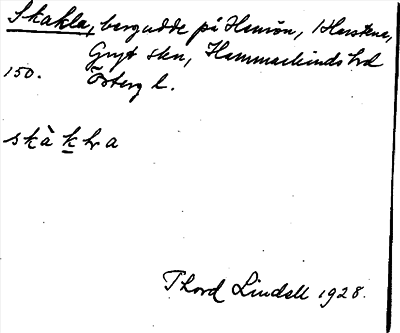 Skakla, bergudde på Hemön, Harstena,
Gryt skn, Hammarkinds hd
150. Österg l.
skàkla
Thord Lindell 1928.